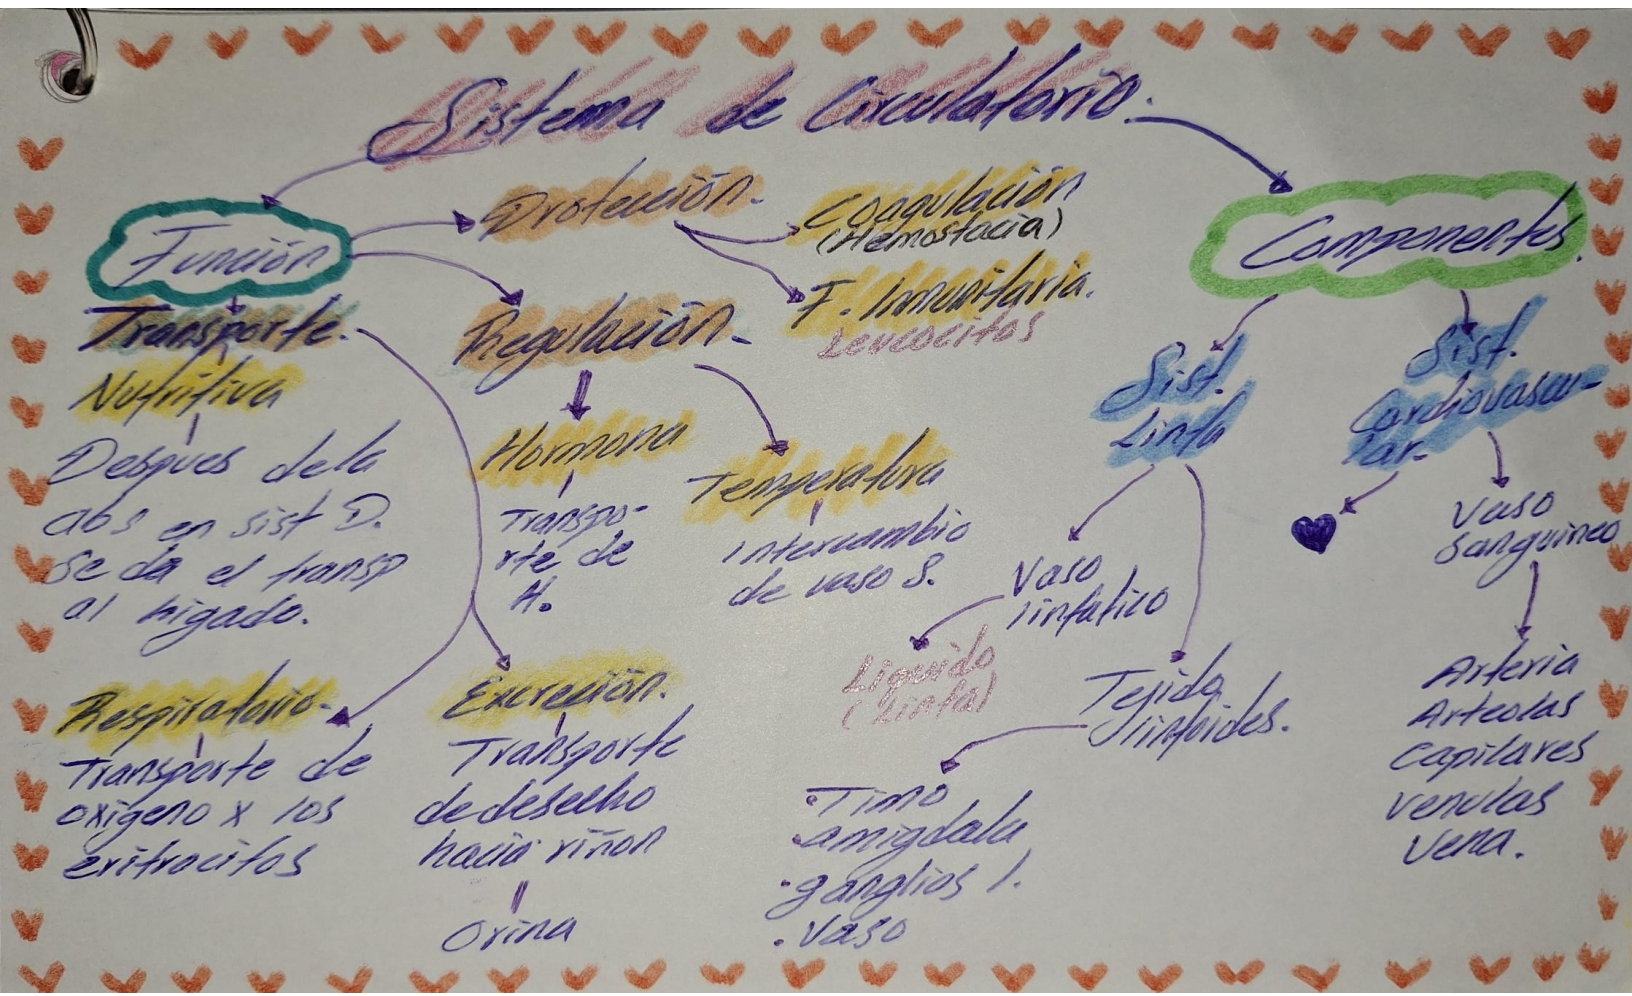 Sistema de Circulatorio.
Función
Transporte.
Nutritiva
Despues dela
abs en sist D.
se da el transp
al higado.
Respiratorio.
Transporte de
oxigeno x los
eritrocitos
Excreción.
Transporte
de desecho
hacia riñon
Orina
Protección.
Coagulación
(Hemostacia)
F. Inmunitaria.
Leucocitos
Regulación.
Hormona
Transpo-
rte de
H.
Temperatura
intercambio
de vaso S.
Componentes.
Sist.
Linfa
Vaso
linfatico
Liquido
(Linfa)
Tejido
linfoides.
•Timo
•amigdala
•ganglios l.
•Vaso
Sist.
Cardiovascu-
lar.
Vaso
Sanguineo
Arteria
Arteolas
Capilares
venulas
Vena.